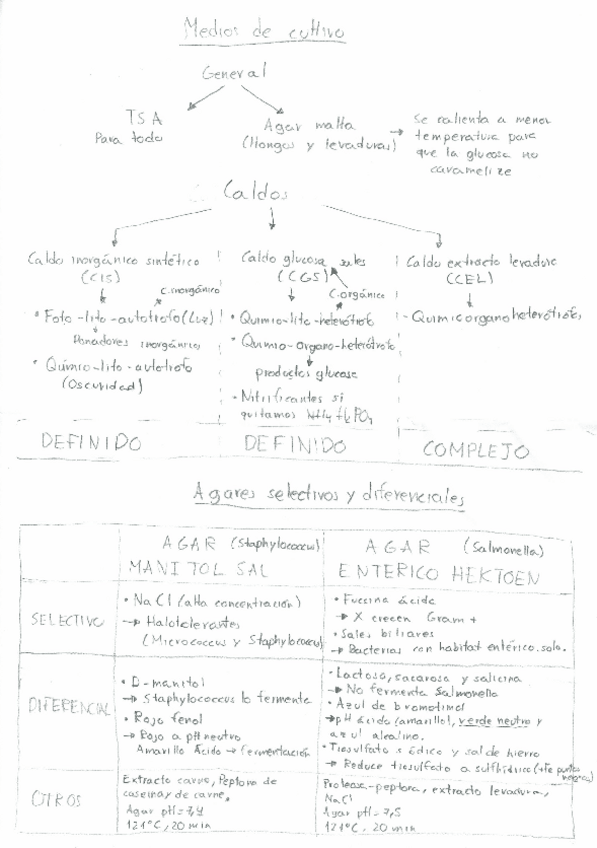 Medios de cultivo
General
TSA
Para todo
Agar malta
(Hongos y levaduras)
Se calienta a menor
temperatura para
que la glucosa no
caramelize
Caldos
Caldo inorgánico sintético
(CIS)
C.inorgánico
• Foto-lito-autotrofo (Luz)
Donadores inorgánicos
• Químio-lito-autotrofo
(Oscuridad)
DEFINIDO
Caldo glucosa sales
(CGS)
C.orgánico
• Químio-lito-heterótrofo
• Químio-organo-heterótrofo
productos glucosa
• Nitrificantes si
quitamos NH4H2PO4
DEFINIDO
Caldo extracto levadura
(CEL)
- Quimiorganoheterótrofos
COMPLEJO
Agares selectivos y diferenciales
AGAR (Staphylococcus)
MANITOL SAL
AGAR (Salmonella)
ENTERICO HEKTOEN
SELECTIVO
• NaCl (alta concentración)
→ Halotolerantes
(Micrococcus y Staphylococcus)
• Fuccina ácida
→ X crecen Gram +
• Sales biliares
→ Bacterias con habitat entérico solo.
DIFERENCIAL
• D-manitol
→ Staphylococcus lo fermenta
• Rojo fenol
→ Rojo a pH neutro
Amarillo Ácido → fermentación
• Lactosa, sacarosa y salicina
→ No fermenta Salmonella
• Azul de bromotimol
→ pH ácido (amarillo), verde neutro y
azul alcalino.
• Tiosulfato sódico y sal de hierro
→ Reduce tiosulfato a sulfhídrico (+Fe puntos
negros)
OTROS
Extracto carne, Peptona de
caseína y de carne,
Agar pH=7,4
121°C, 20 min
Proteasa-peptona, extracto levadura,
NaCl
Agar pH=7,5
121°C, 20 min